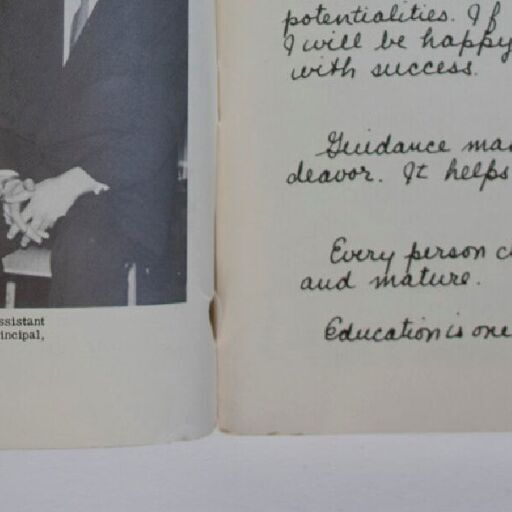 ssistant
incipal,
potentialities. If
I will be happy
with success.
Guidance ma
deavor. It helps
Every person c
and mature.
Education is one